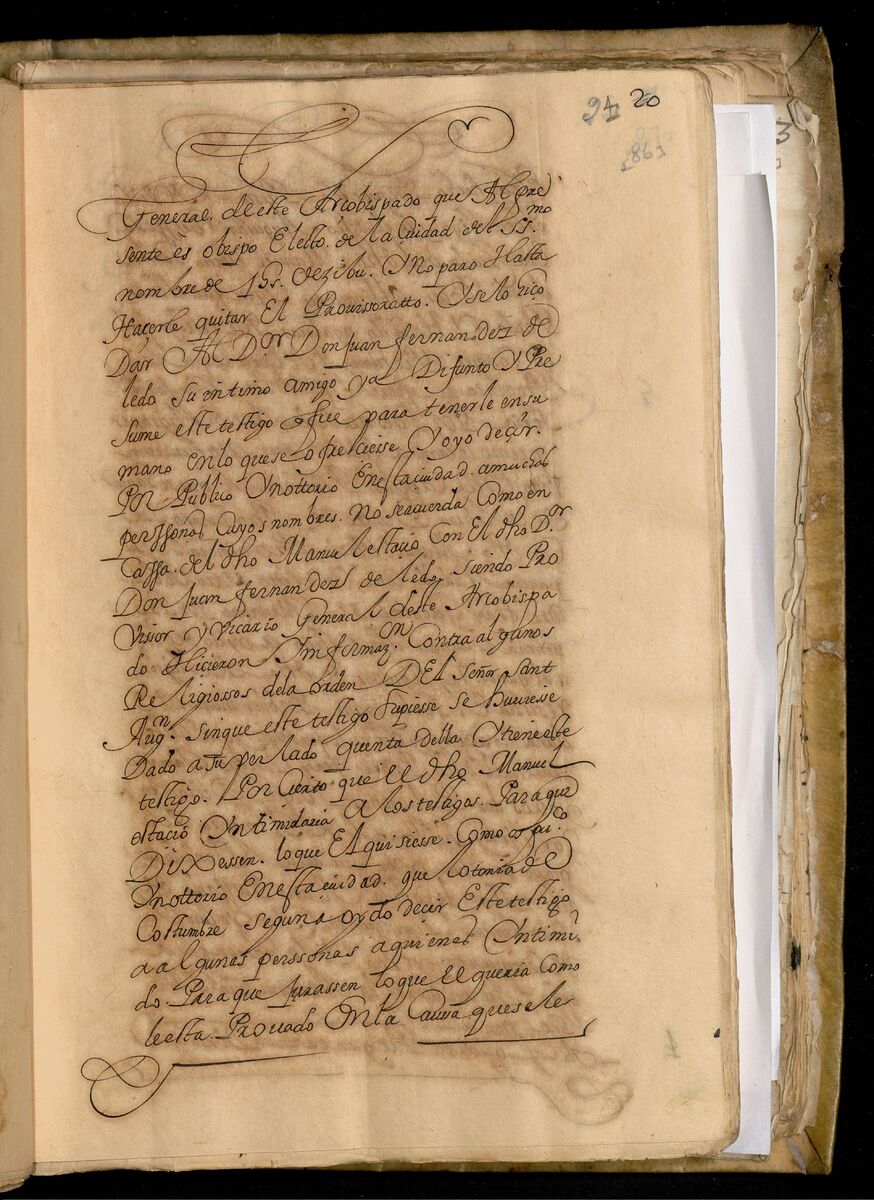 94 20
186
General. deeste Arcobispado que Al pre
sente ès obispo Electo. de la Cuidad del SS.mo
nombre de Jhs. de zibu. Y No paro Hasta
Hacerle quitar El Prouissoratto. Y se lo hiço
Dar Al D.or Don Juan fernandez de
ledo su intimo amigo ya Difunto Y Pre
sume este testigo q fue para tenerle en su
mano en lo que se ofreciese Y oyo deçir.
Por Publico Y nottorio En esta ciudad. a muchas
perssonas Cuyos nombres. No se acuerda Como en
Cassa. del dho Manuel estacio Con El dho D.or
Don Juan fernandez de ledo, siendo Pro
Visor y Vicario General deste Arcobispa
do Hicieron Informaz.on Contra algunos
Religiossos dela orden DEl Señor sant
Aug.n sin que este testigo supiesse se huuiesse
Dado a su perlado quenta della Y tiene este
testigo. Por Cierto que el dho Manuel
estacio Yntimidaria A los testigos. Para que
DiXessen. lo que El quisiesse. Como es pu.co
Ynottorio En esta cuidad. que lo tenia de
Costumbre segun a oydo decir Este testigo
a algunas perssonas a quienes Yntimi
do. Para que Jurassen lo que el queria Como
le esta. Prouado En la Causa que se le